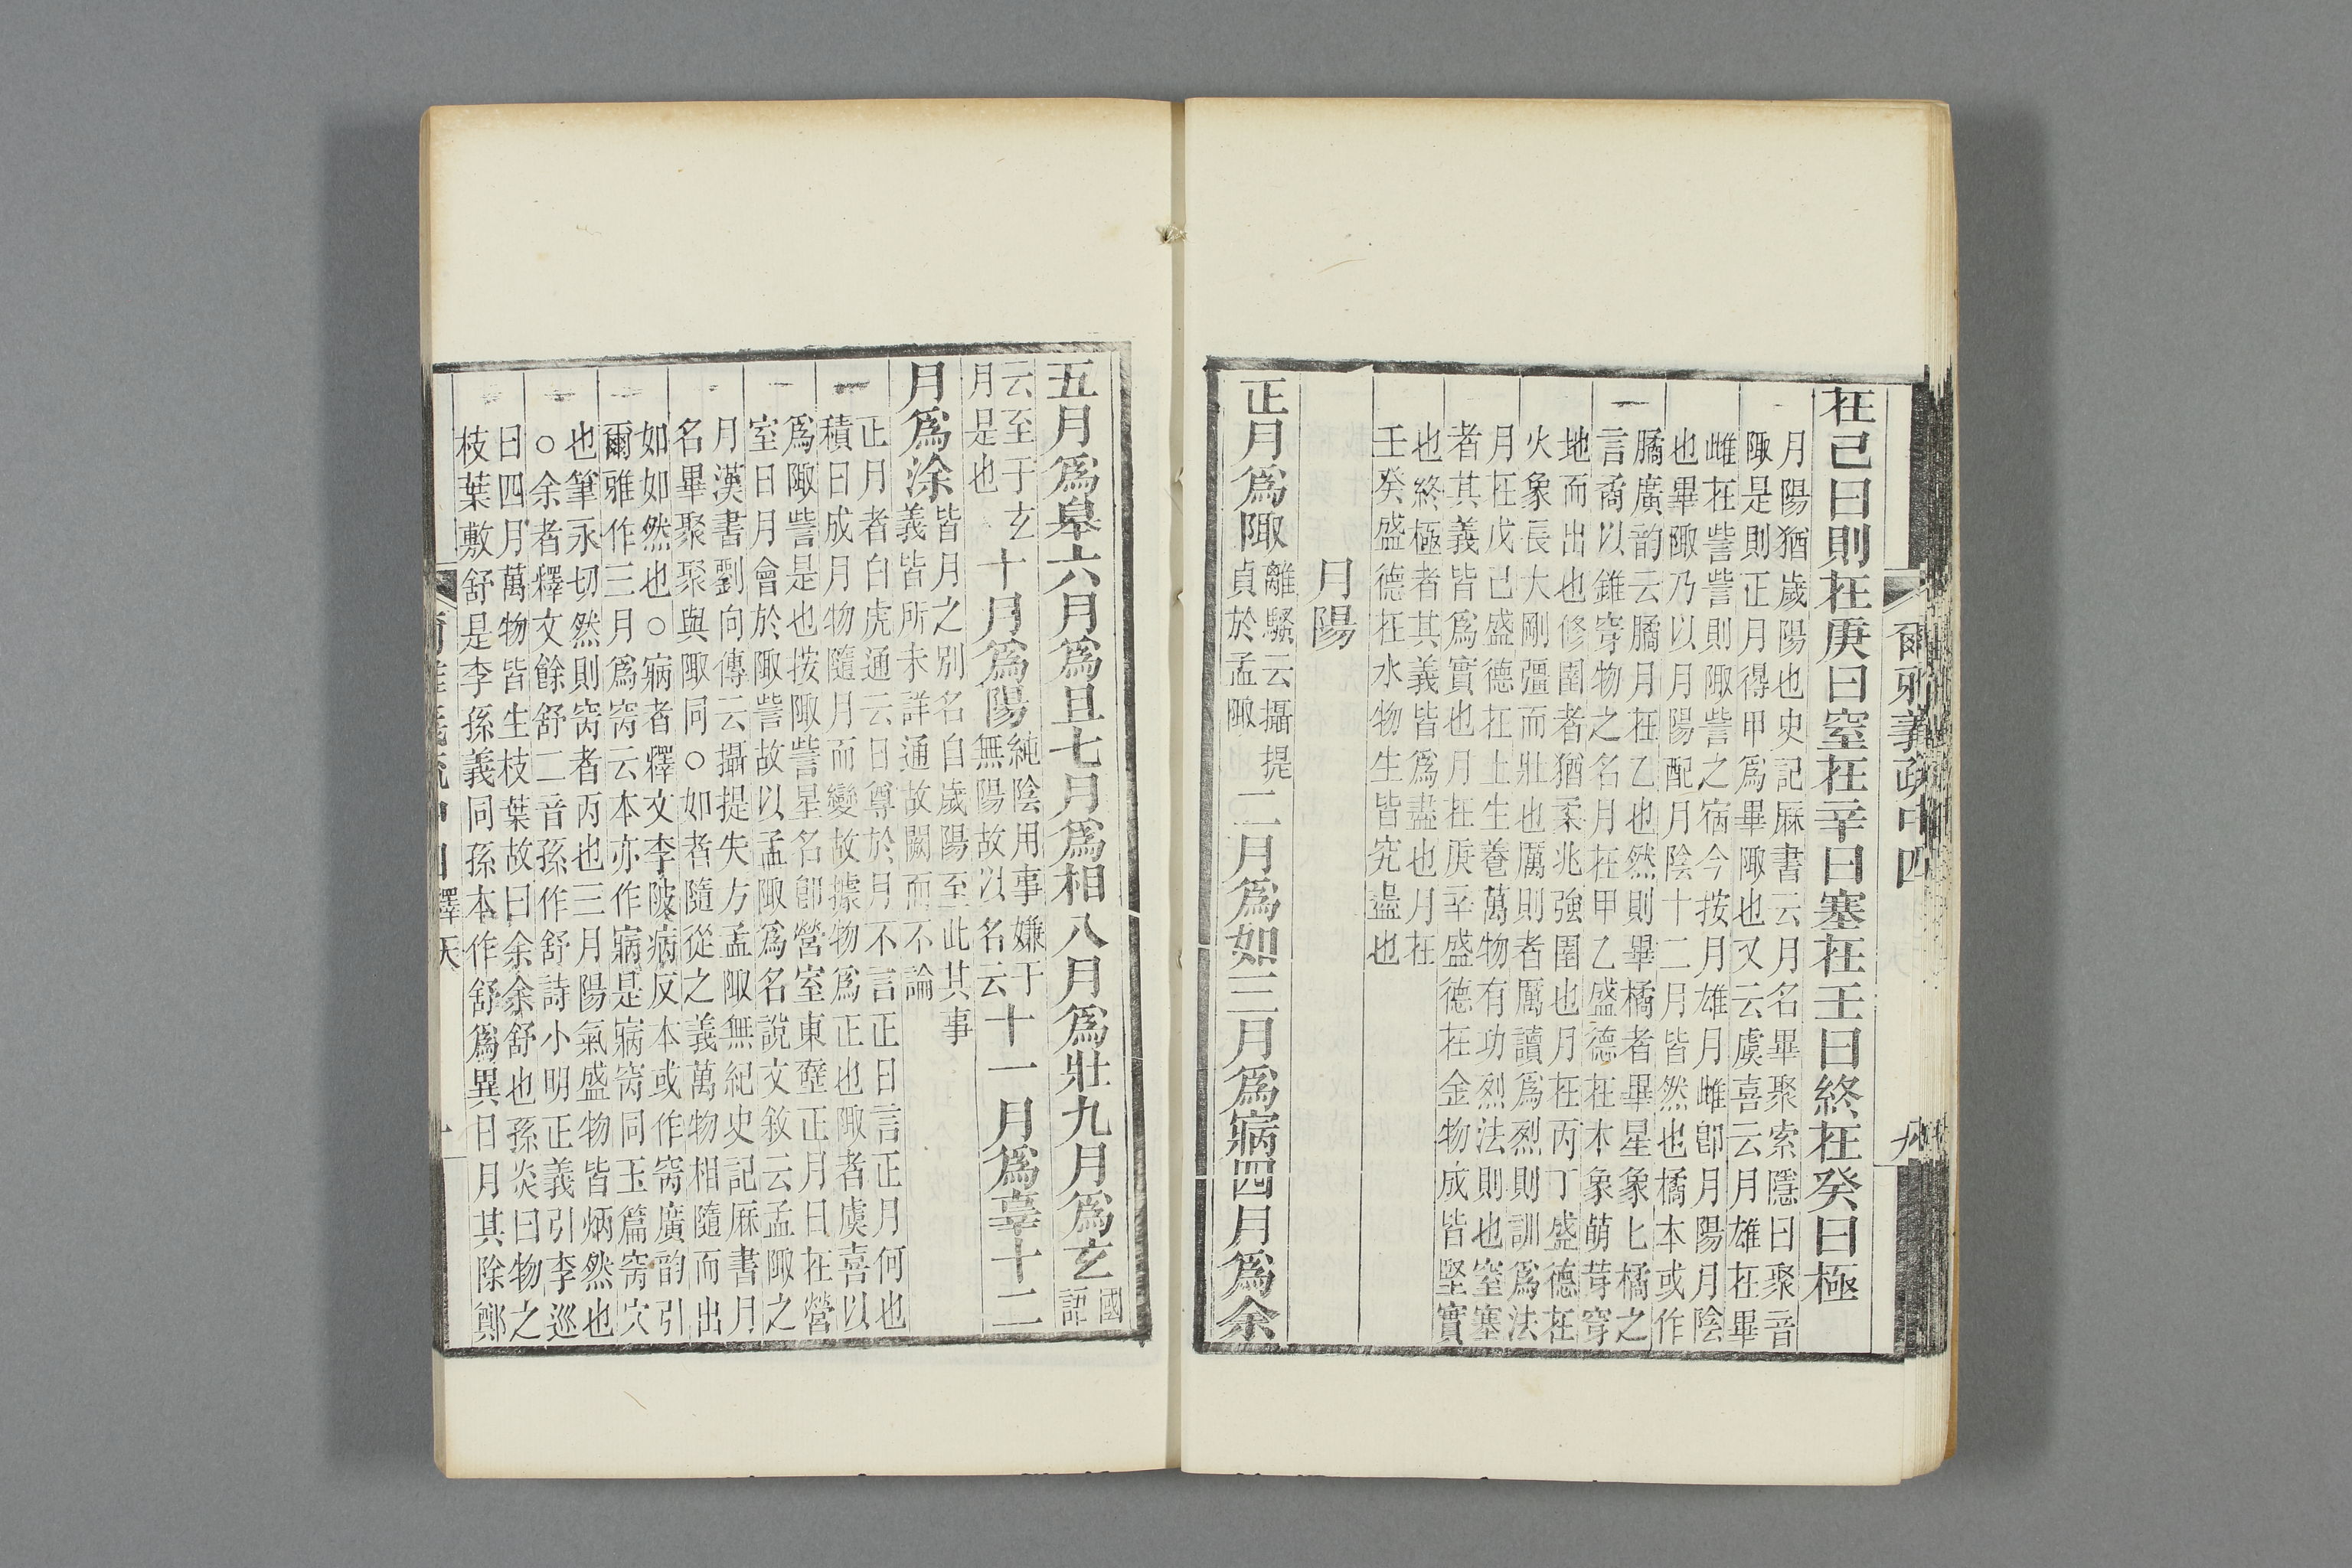 爾雅義疏中四　九
在己曰則在庚曰窒在辛曰塞在壬曰終在癸曰極
月陽猶歲陽也史記厤書云月名畢聚索隱曰聚音
陬是則正月得甲爲畢陬也又云虞喜云月雄在畢
雌在訾訾則陬訾之宿今按月雄月雌卽月陽月陰
也畢陬乃以月陽配月陰十二月皆然也橘本或作
廣韵云月在乙也然則畢橘者畢星象匕橘之
言矞以錐穿物之名月在甲乙盛德在木象萌芽穿
地而出也修圉者猶柔兆強圉也月在丙丁盛德在
火象長大剛彊而壯也厲則者厲讀爲烈則訓爲法
月在戊己盛德在土生養萬物有功烈法則也窒塞
者其義皆爲實也月在庚辛盛德在金物成皆堅實
也終極者其義皆爲盡也月在
壬癸盛德在水物生皆究盡也
月陽
正月爲陬離騷云攝提貞於孟陬二月爲如三月爲寎四月爲余
五月爲皋六月爲且七月爲相八月爲壯九月爲玄國語
云至于玄月是也十月爲陽純陰用事嫌于無陽故以名云十一月爲辜十二
月爲涂皆月之別名自歲陽至此其事義皆所未詳通故闕而不論
正月者白虎通云日尊於月不言正日言正月何也
積日成月物隨月而變故據物爲正也陬者虞喜以
爲陬訾是也按陬訾星名卽營室東壁正月日在營
室日月會於陬訾故以孟陬爲名說文敘云孟陬之
月漢書劉向傳云攝提失方孟陬無紀史記厤書月
名畢聚聚與陬同○如者隨從之義萬物相隨而出
如如然也○寎者釋文李陂病反本或作窉廣韵引
爾雅作三月爲窉云本亦作寎是寎窉同玉篇窉穴
也筆永切然則窉者丙也三月陽氣盛物皆炳然也
○余者釋文餘舒二音孫作舒詩小明正義引李巡
曰四月萬物皆生枝葉故曰余余舒也孫炎曰物之
枝葉敷舒是李孫義同孫本作舒爲異日月其除鄭
爾雅義疏中四釋天　十